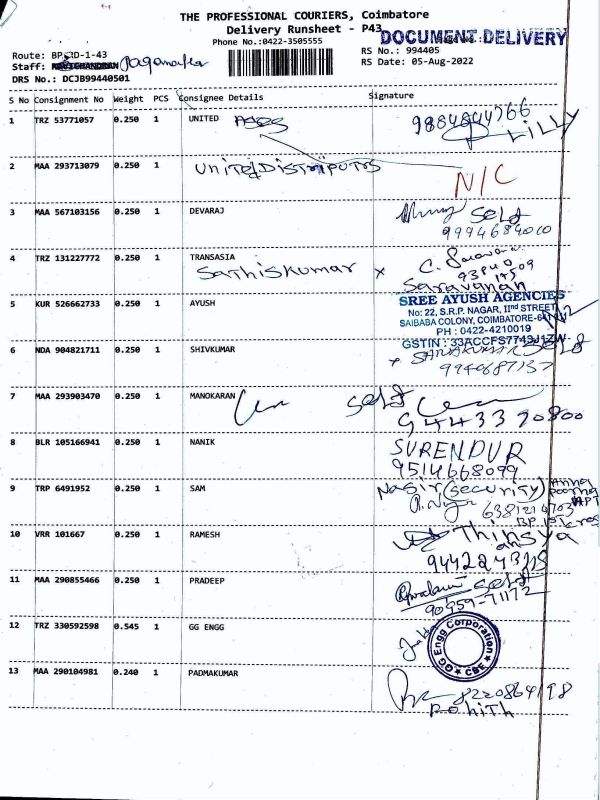 THE PROFESSIONAL COURIERS, Coimbatore
Delivery Runsheet - P43
DOCUMENT DELIVERY
Phone No.:0422-3505555
Route: BP-3D-1-43
RS No.: 994405
Staff:
RS Date: 05-Aug-2022
DRS No.: DCJB99440501
S No Consignment No Weight PCS Consignee Details Signature
1 TRZ 53771057 0.250 1 UNITED
LILLY
2 MAA 293713079 0.250 1 United Distriputrs N/C
3 MAA 567103156 0.250 1 DEVARAJ Self
9994684010
4 TRZ 131227772 0.250 1 TRANSASIA
Sathiskumar x
Saravanan
5 KUR 526662733 0.250 1 AYUSH SREE AYUSH AGENCIES
No: 22, S.R.P. NAGAR, IInd STREET,
SAIBABA COLONY, COIMBATORE-
PH : 0422-4210019
GSTIN : 33ACCFS7743J1ZW
6 NDA 904821711 0.250 1 SHIVKUMAR x Self
9940687137
7 MAA 293903470 0.250 1 MANOKARAN Self
9443320800
8 BLR 105166941 0.250 1 NANIK SURENDUR
9514668099
9 TRP 6491952 0.250 1 SAM Nasir (Security)
10 VRR 101667 0.250 1 RAMESH Thinsya
11 MAA 290855466 0.250 1 PRADEEP Self
90959-71172
12 TRZ 330592598 0.545 1 GG ENGG GG Engg Corporation CBE
13 MAA 290104981 0.240 1 PADMAKUMAR 8220864198
Rohith